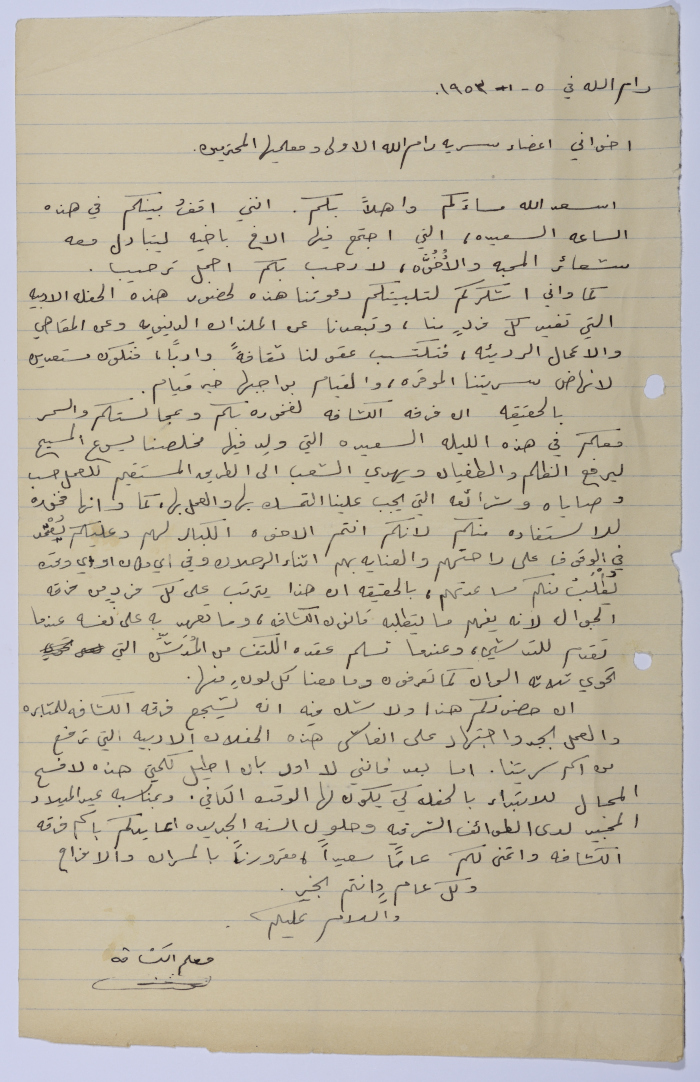 رام الله في ٥ - ١ - ١٩٥٣.
اخواني اعضاء سريه رام الله الاولى ومعلميها المحترمين.
اسعد الله مساءكم واهلاً بكم. انني اقف بينكم في هذه
الساعه السعيده، التي اجتمع فيها الاخ باخيه ليتبادل معه
شعائر المحبه والأُخُوَّه، لارحب بكم اجمل ترحيب.
كما واني اشكركم لتلبيتكم دعوتنا هذه لحضور هذه الحفله الادبيه
التي تفيد كل فردٍ منا، وتبعدنا عن الملذات الدنيويه وعن المقاهي
والاعمال الرديئه، فتكتسب عقولنا ثقافةً وادباً، فنكون مستعدين
لانهاض سريتنا الموقره، والقيام بواجبها خير قيام.
بالحقيقه ان فرقه الكشافه لفخوره بكم وبمجالستكم والسمر
معكم في هذه الليله السعيده التي ولد فيها مخلصنا يسوع المسيح
ليرفع الظلم والطغيان ويهدي الشعب الى الطريق المستقيم للعمل حسب
وصاياه وشرائعه التي يجب علينا التمسك بها والعمل بها، كما وانها فخوره
للاستفاده منكم لانكم انتم الاخوه الكبار لهم وعليكم يُعْتَمد
في الوقوف على راحتهم والعنايه بهم اثناء الرحلات وفي اي مكان او اي وقت
تُطْلَبُ منكم مساعدتهم، بالحقيقه ان هذا يترتب على كل فردٍ من فرقه
الجوال لانه يفهم ما يتطلبه قانون الكشافه، وما تعهد به على نفسه عندما
تقدم للتدشين، وعندما تسلم عقده الكتف من المُدَشِّن التي
تحوي ثلاثه الوان كما تعرفون وما معنا كل لونٍ منها.
ان حضوركم هذا ولا شك فيه انه يشجع فرقه الكشافه للمثابره
والعمل بجد واجتهاد على انعاش هذه الحفلات الادبيه التي ترفع
من اسم سريتنا. اما بعد فانني لا اود بان اطيل كلمتي هذه لافسح
المجال للابتداء بالحفله كي يكون لها الوقت الكافي. وبمناسبه عيد الميلاد
المجيد لدى الطوائف الشرقيه وحلول السنه الجديده اعايدكم باسم فرقه
الكشافه واتمنى لكم عاماً سعيداً، مقروناً بالمسرات والافراح
وكل عام وانتم بخير.
والسلام عليكم.
معلم الكشافه